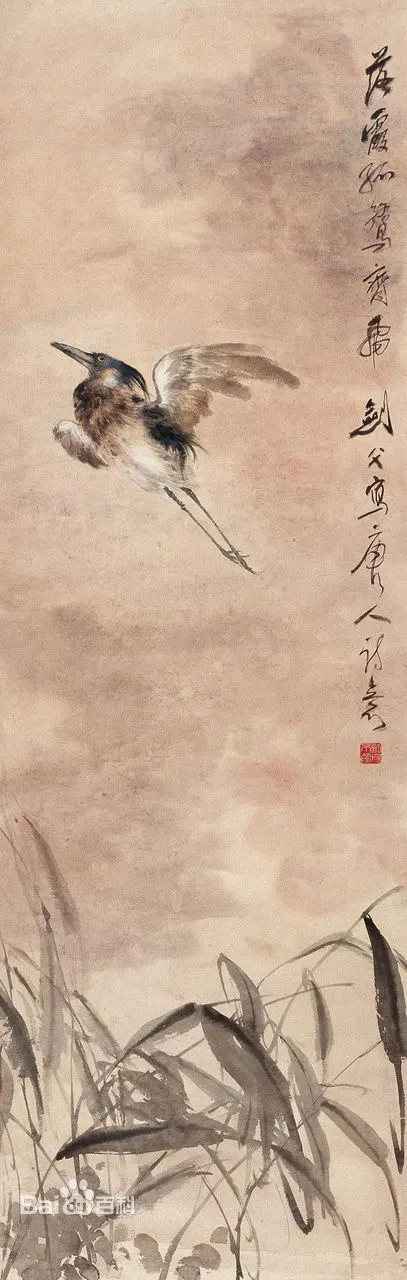 落霞孤鶩齊飛
劍父寫唐人詩意
Bai百科